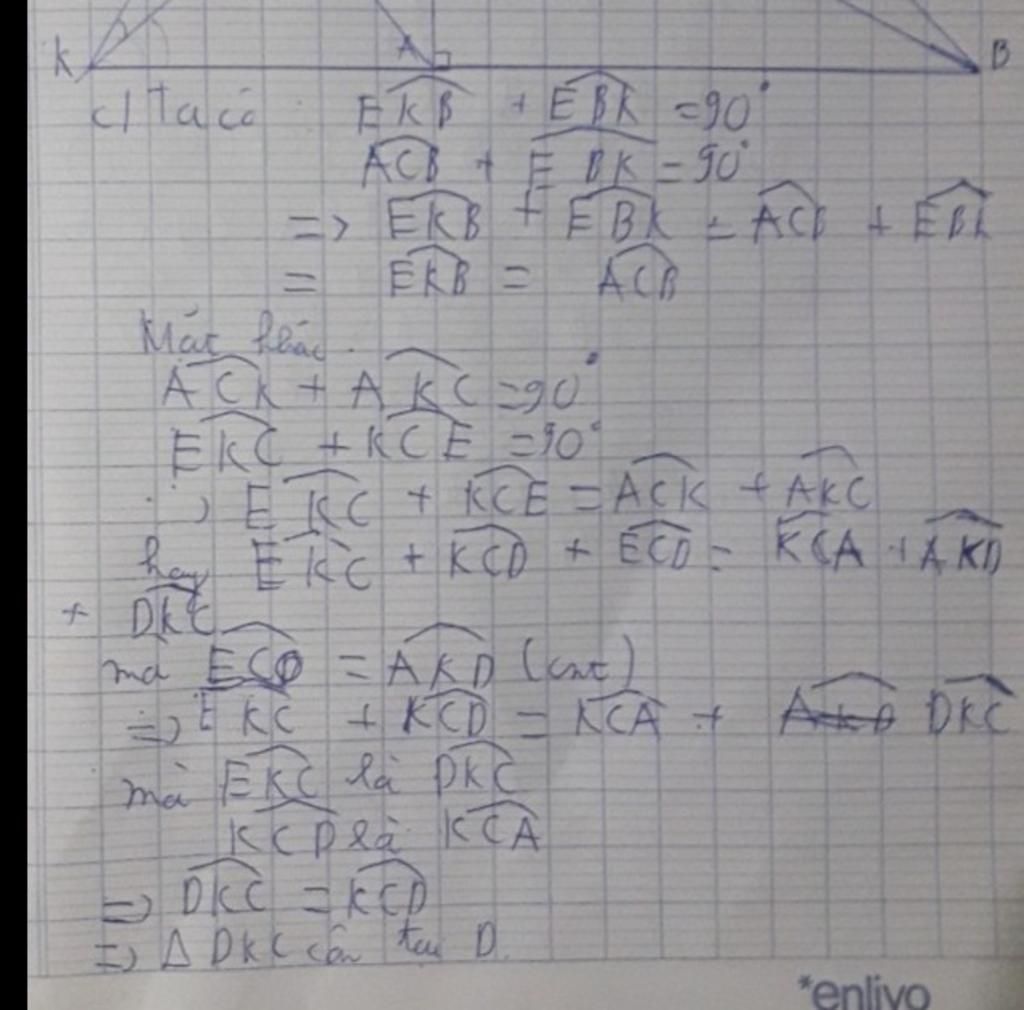 K A B
c/ Ta có EKB + EBK = 90°
ACB + EBK = 90°
=> EKB + EBK = ACB + EBK
= EKB = ACB
Mặt khác
ACK + AKC = 90°
EKC + KCE = 90°
=> EKC + KCE = ACK + AKC
hay EKC + KCD + ECD = KCA + AKD
+ DKC
mà ECD = AKD (cmt)
=> EKC + KCD = KCA + AKD DKC
mà EKC là DKC
KCD là KCA
=> DKC = KCD
=> Δ DKC cân tại D.
*enlivo